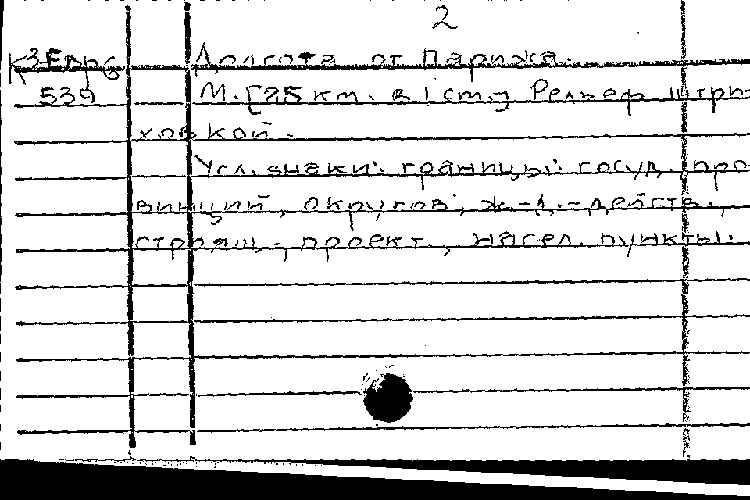 2
К³Евр6 Долгота от Парижа.
539 М. [25 км. в 1 ст.] Рельеф штри-
ховкой.
Усл. знаки: границы: госуд., про
винций, округов; ж.-д.-действ.,
строящ., проект., насел. пункты.